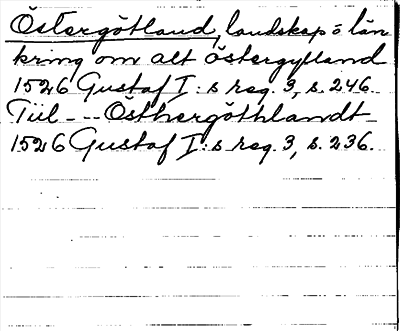 Östergötland, landskap o län
kring om alt östergylland
1526 Gustaf I:s reg. 3, s. 246.
Tiil - - - Östhergöthlandt
1526 Gustaf I:s reg. 3, s. 236.